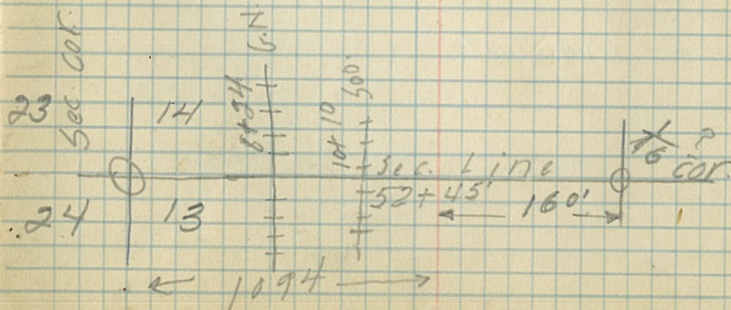 Sec. Cor.
23
14
24
13
6+24
G.N.
10+10
Soo.
Sec. Line
52+45'
160'
1/16 cor.
?
1094